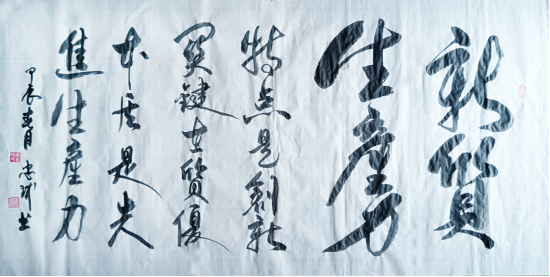 新質
生產力
特点是創新
關鍵在質優
本质是先
進生產力
甲辰春月 忠斌书